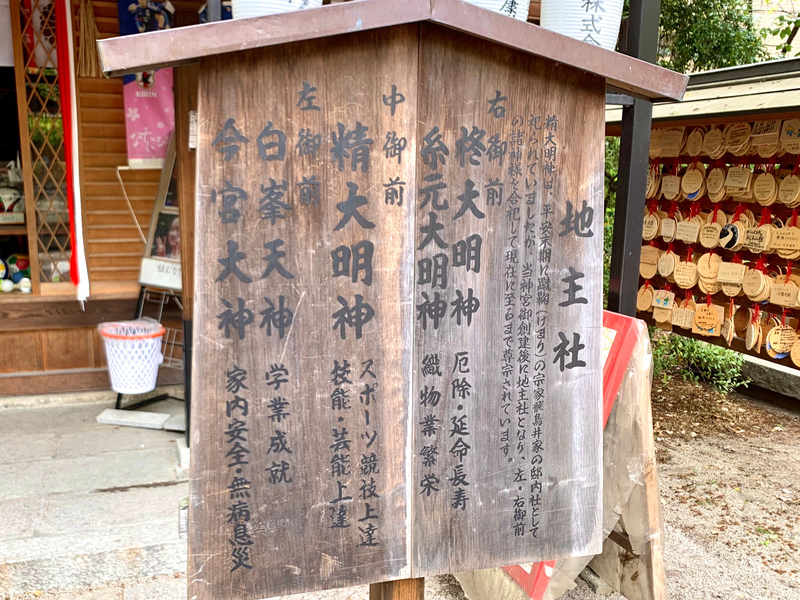 地主社
精大明神は、平安末期に蹴鞠(けまり)の宗家飛鳥井家の邸内社として
祀られていましたが、当神宮御創建後に地主社となり、左・右御前
の諸神様を合祀して現在に至るまで尊宗されています。
右御前
柊大明神 厄除・延命長寿
糸元大明神 織物業繁栄
中御前
精大明神 スポーツ競技上達
技能・芸能上達
左御前
白峯天神 学業成就
今宮大神 家内安全・無病息災
株式